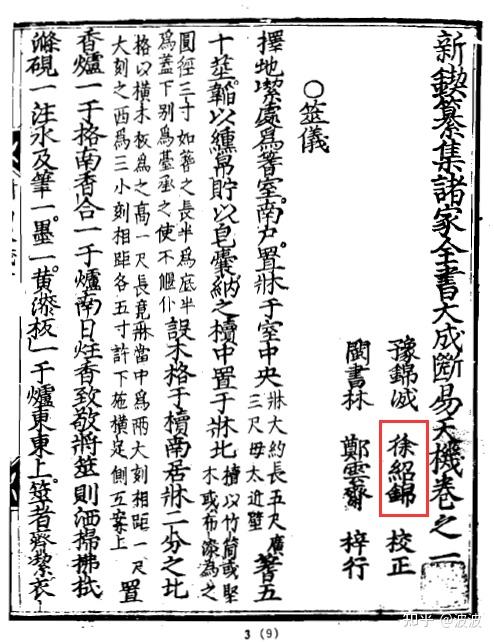 新鍥纂集諸家全書大成斷易天機卷之一
豫錦誠 徐紹錦 校正
閩書林 鄭雲齋 梓行
○筮儀
擇地潔處爲蓍室南户置牀于室中央牀大約長五尺廣三尺毋太近壁蓍五
十莖韜以纁帛貯以皂囊納之櫝中置于牀北櫝以竹筒或堅木或布漆為之
圓徑三寸如蓍之長半爲底半爲蓋下别爲臺丞之使不偃仆設木格于櫝南居牀二分之北
格以横木板爲之高一尺長竟牀當中爲兩大刻相距一尺大刻之西爲三小刻相距各五寸許下施横足側立案上置
香爐一于格南香合一于爐南日炷香致敬將筮則洒掃拂拭
滌硯一注水及筆一墨一黄漆板一于爐東東上筮者齊潔衣
3 (9)
知乎 @波波